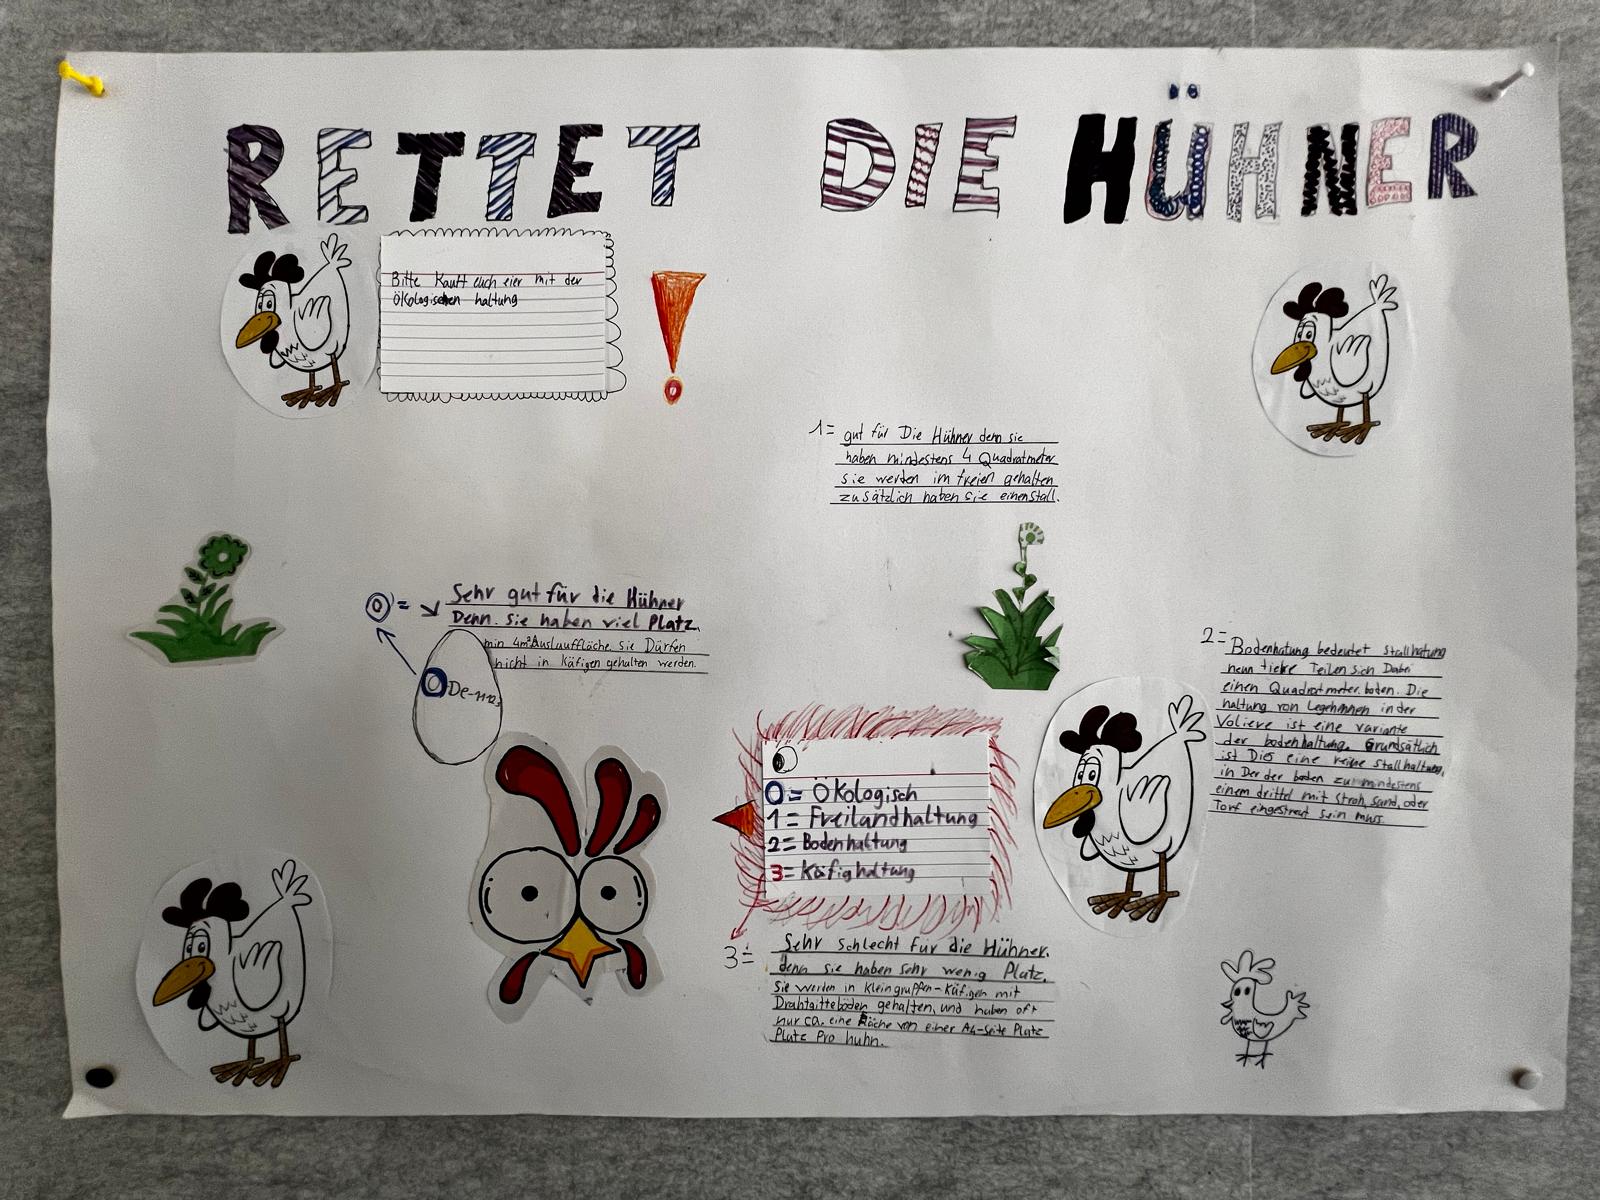 RETTET DIE HÜHNER
Bitte Kauft euch eier mit der
Ökologischen haltung
!
1= gut für Die Hühner denn sie
haben mindestens 4 Quadratmeter
sie werden im freien gehalten
zusätzlich haben sie einen Stall.
0 = Sehr gut für die Hühner
Denn. sie haben viel Platz.
min 4m² Auslauffläche. sie Dürfen
nicht in Käfigen gehalten werden.
0-De-
2= Bodenhatung bedeutet stallhatung
neun tiere Teilen sich Dabei
einen Quadratmeter boden. Die
haltung von Legehennen in der
Voliere ist eine variante
der bodenhaltung. Grundsätlich
ist Dies eine reine stallhaltung,
in Der der boden zu mindestens
einem drittel mit stroh, sand, oder
Torf eingestreut sein muss.
0= Ökologisch
1= Freilandhaltung
2= Bodenhaltung
3= Käfighaltung
3= Sehr schlecht für die Hühner.
denn sie haben sehr wenig Platz.
Sie werden in Kleingruppen-Käfigen mit
Drahtgitteböden gehalten, und haben oft
nur ca. eine Fläche von einer A4-Seite Platz
Platz Pro huhn.